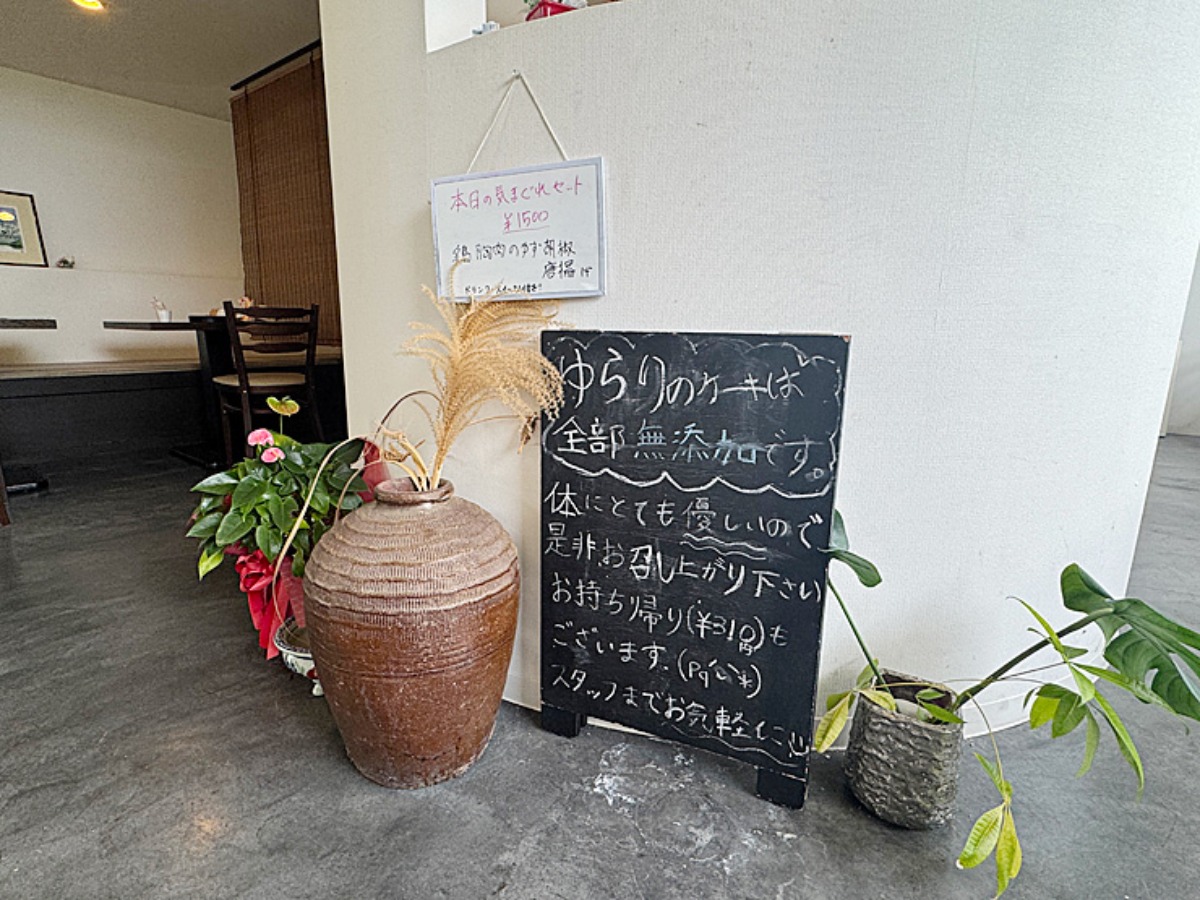 本日の気まぐれセット
¥1500
鶏胸肉のゆず胡椒
唐揚げ
ゆらりのケーキは
全部無添加です。
体にとても優しいので
是非お召し上がり下さい
お持ち帰り(¥310円)も
ございます。
スタッフまでお気軽に